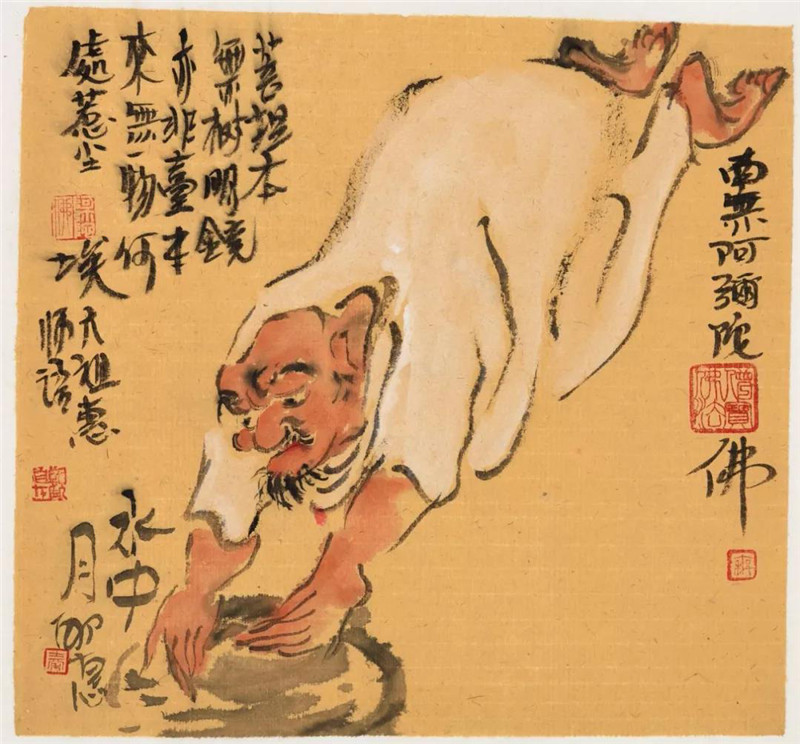 南無阿彌陀
佛
菩提本
無树明鏡
亦非臺本
來無一物何
處惹尘
埃
六祖惠
师语
水中
月